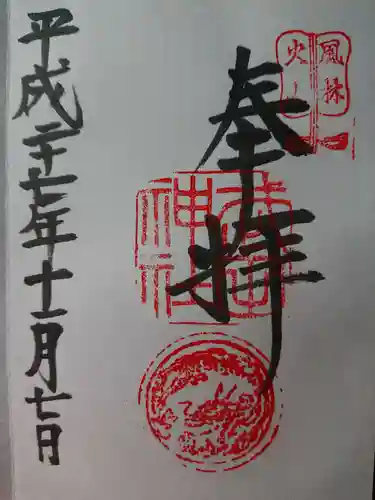 風林
火山
奉拝
武田
神社
平成二十七年十一月七日